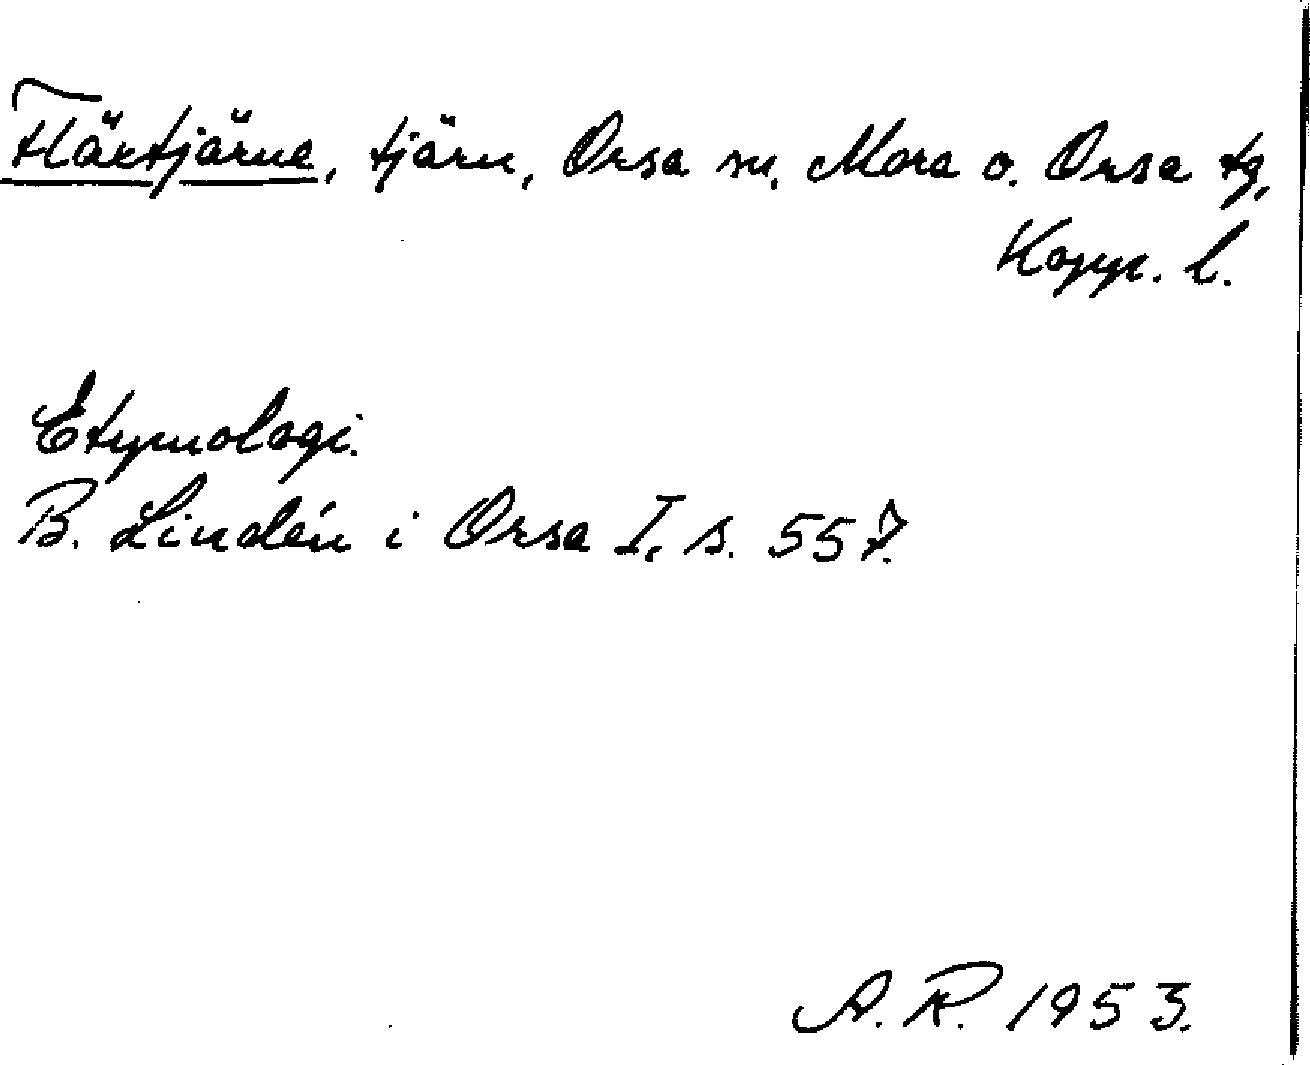 Flärtjärne, tjärn, Orsa sn, Mora o. Orsa tg,
Kopp. l.
Etymologi.
B. Lindén i Orsa I, s. 557.
A. R. 1953.